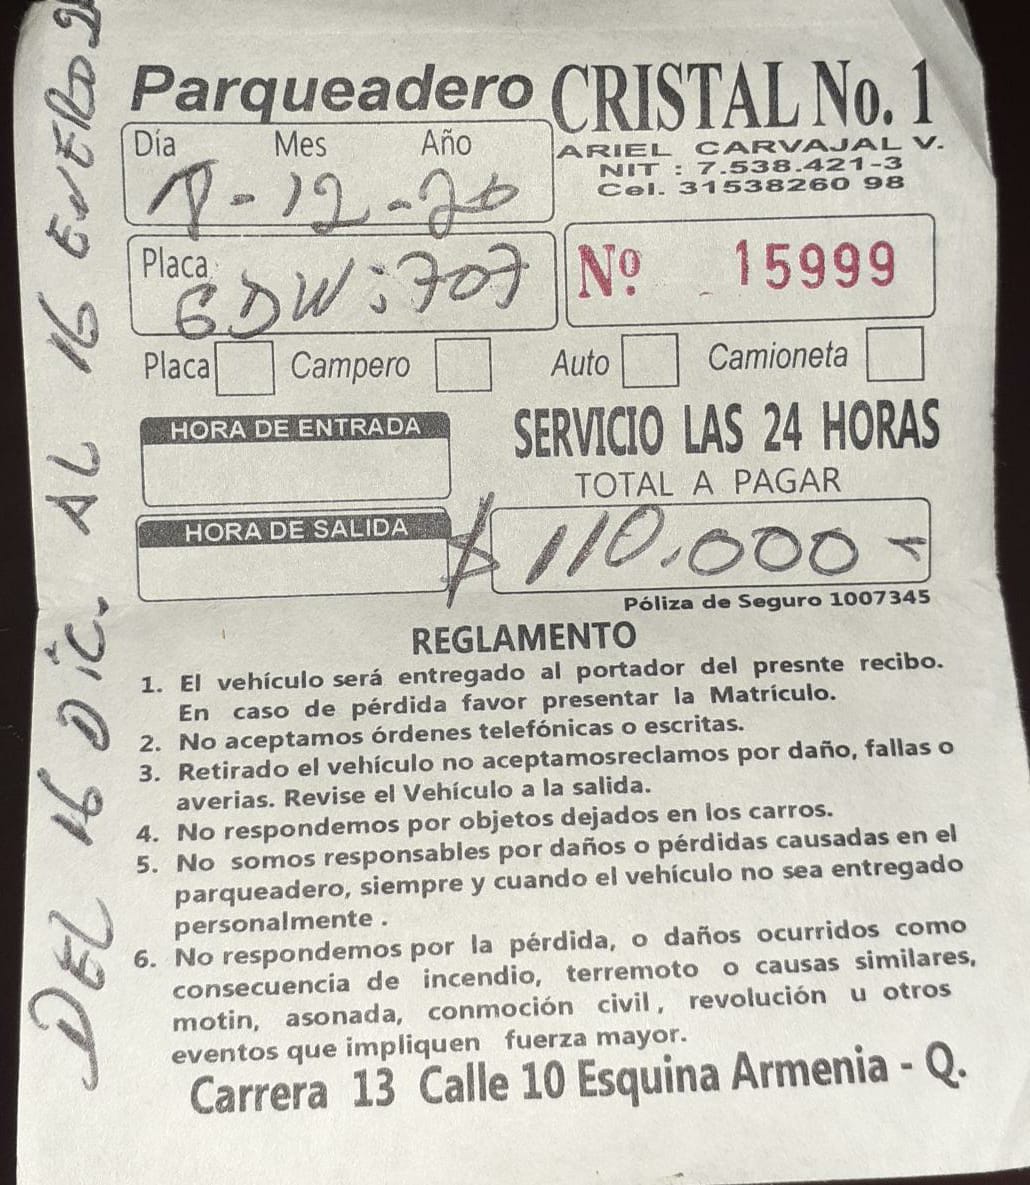 Parqueadero CRISTAL No. 1
ARIEL CARVAJAL V.
NIT : 7.538.421-3
Cel. 31538260 98
Día Mes Año
-12-20
Placa GDW:707
Nº 15999
Placa Campero Auto Camioneta
HORA DE ENTRADA
SERVICIO LAS 24 HORAS
TOTAL A PAGAR
HORA DE SALIDA
$ 110.000-
Póliza de Seguro 1007345
REGLAMENTO
1. El vehículo será entregado al portador del presnte recibo.
En caso de pérdida favor presentar la Matrículo.
2. No aceptamos órdenes telefónicas o escritas.
3. Retirado el vehículo no aceptamosreclamos por daño, fallas o
averias. Revise el Vehículo a la salida.
4. No respondemos por objetos dejados en los carros.
5. No somos responsables por daños o pérdidas causadas en el
parqueadero, siempre y cuando el vehículo no sea entregado
personalmente .
6. No respondemos por la pérdida, o daños ocurridos como
consecuencia de incendio, terremoto o causas similares,
motin, asonada, conmoción civil, revolución u otros
eventos que impliquen fuerza mayor.
Carrera 13 Calle 10 Esquina Armenia - Q.
DEL 16 DIC. AL 16 ENERO